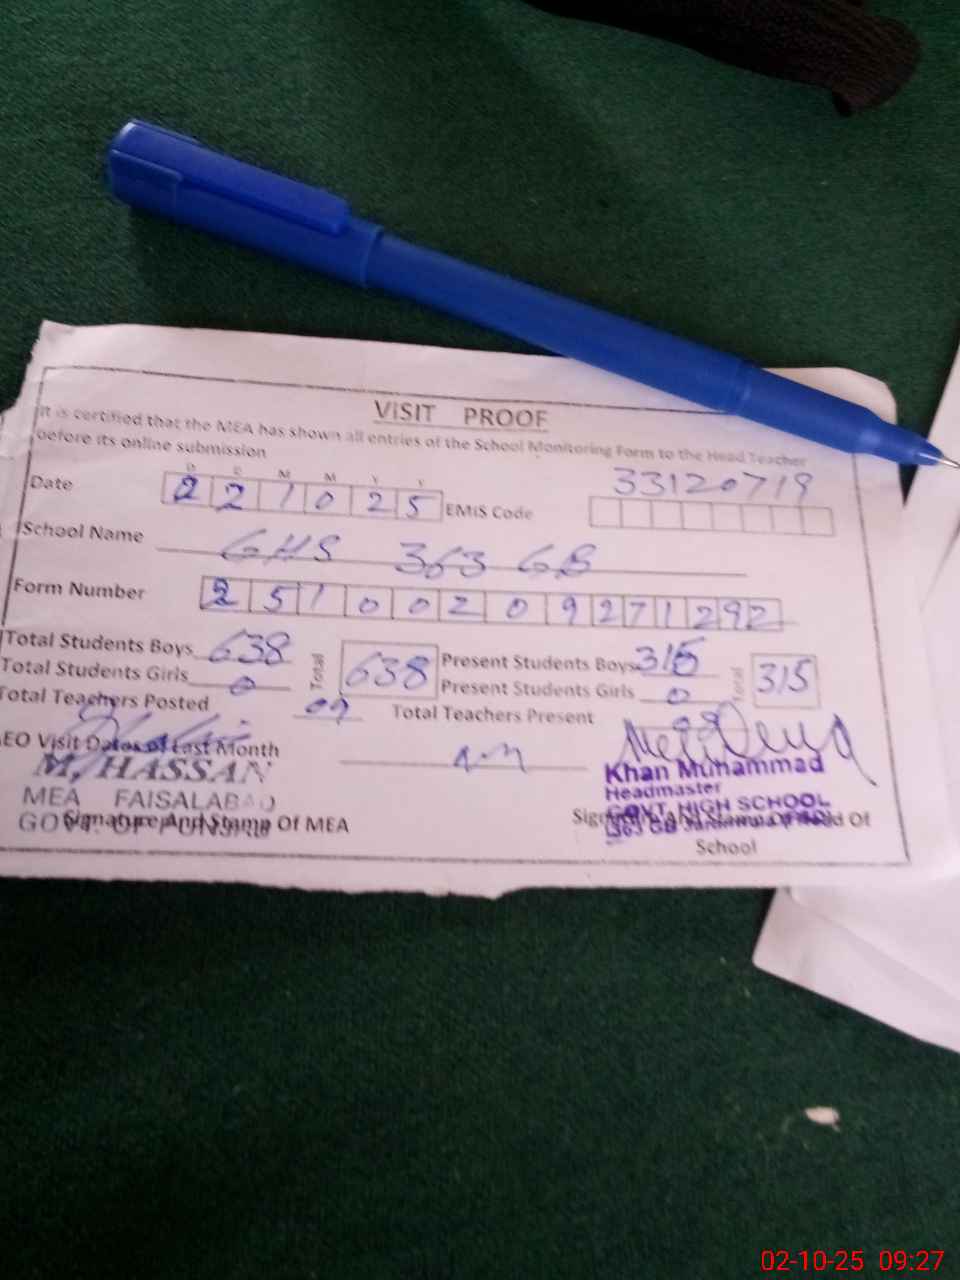 VISIT PROOF
It is certified that the MEA has shown all entries of the School Monitoring Form to the Head Teacher
before its online submission
D D M M Y Y
Date 221025 EMIS Code 33120719
School Name GHS 363 GB
Form Number 25100209271292
Total Students Boys 638 Total 638 Present Students Boys 315 Total 315
Total Students Girls 0 Present Students Girls 0
Total Teachers Posted 09 Total Teachers Present 09
AEO Visit Dates of Last Month
M. HASSAN
MEA FAISALABAD
GOVT. OF PUNJAB
Signature And Stamp Of MEA
Khan Muhammad
Headmaster
GOVT. HIGH SCHOOL
363 GB
Signature And Stamp Of Head Of
School
02-10-25 09:27